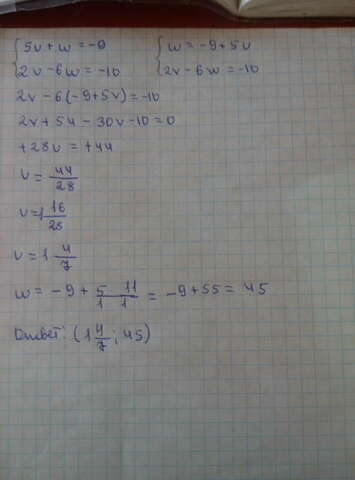 5v + w = -9    w = -9+5v
2v - 6w = -10    2v - 6w = -10
2v - 6(-9+5v) = -10
2v + 54 - 30v - 10 = 0
+28v = +44
v = 44/28
v = 1 16/28
v = 1 4/7
w = -9 + 5/1 11/1 = -9+55 = 45
Ответ: (1 4/7; 45)